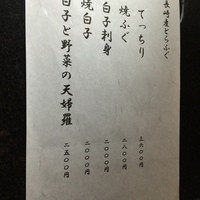 長崎産とらふぐ
てっちり
三六〇〇円
焼ふぐ
二八〇〇円
白子刺身
二〇〇〇円
焼白子
二〇〇〇円
白子と野菜の天婦羅
二五〇〇円